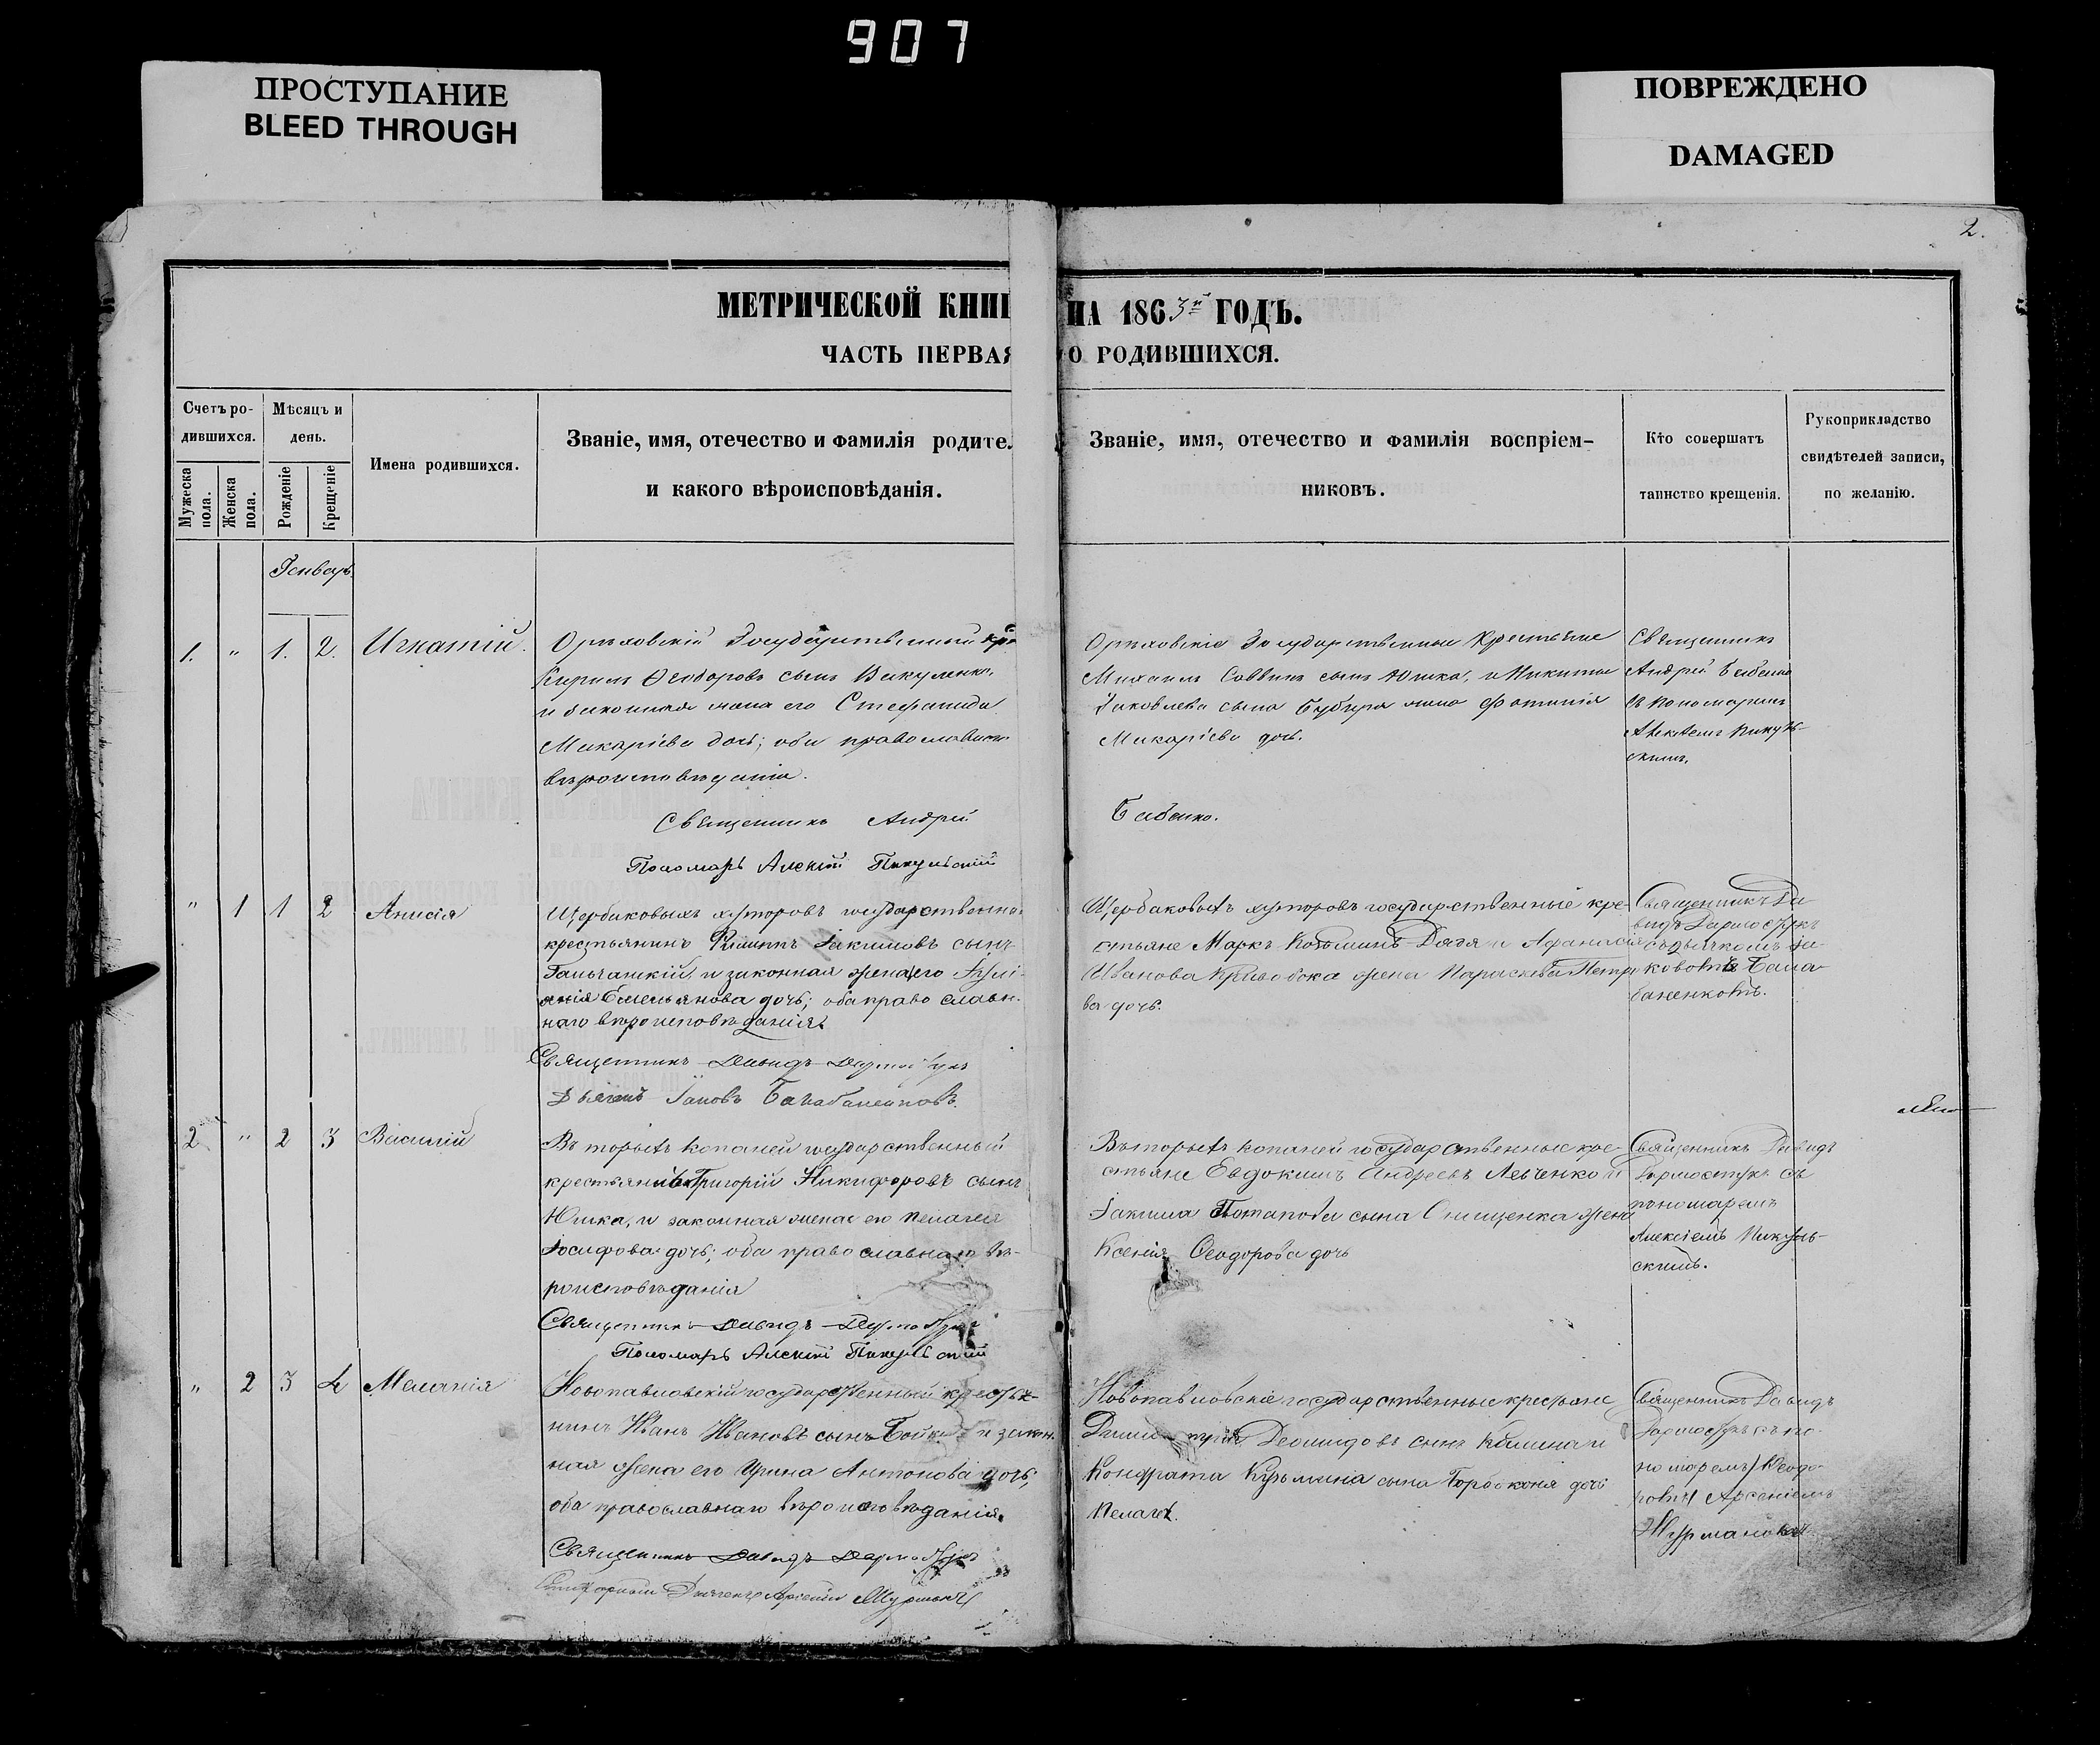 907
ПРОСТУПАНИЕ
BLEED THROUGH
ПОВРЕЖДЕНО
DAMAGED
2.
МЕТРИЧЕСКОЙ КНИГ НА 1863й ГОДЪ.
ЧАСТЬ ПЕРВАЯ О РОДИВШИХСЯ.
Счетъ ро-
дившихся.
Мужеска пола.
Женска пола.
Мѣсяцъ и
день.
Рожденіе
Крещеніе
Имена родившихся.
Званіе, имя, отечество и фамилія родите.
и какого вѣроисповѣданія.
Званіе, имя, отечество и фамилія воспріем-
никовъ.
Кто совершатъ
таинство крещенія.
Рукоприкладство
свидѣтелей записи,
по желанію.
Генварь
1. " 1. 2. Игнатій.
Орѣховскій Государственный кре
Кирилъ Ѳеодоровъ сынъ Викуленко,
и законная жена его Стефанида
Макаріева дочь; оба православнаго
вѣроисповѣданія.
Священникъ Андрей
Пономарь Алексій Пикульскій
Орѣховскіе Государственные Крестьяне
Михаилъ Саввинъ сынъ Юшка, и Никиты
Яковлева сына жена Фотинія
Макаріева дочь.
Бабенко.
Священникъ
Андрей Бабенко
съ пономаремъ
Алексѣемъ Пикуль-
скимъ.
" 1 1 2 Анисія
Щербаковыхъ хуторовъ государственный
крестьянинъ Филиппъ Іакимовъ сынъ
и законная жена его Іулі-
анія Емельянова дочь; оба православ-
наго вѣроисповѣданія.
Священникъ Давидъ
Дьячокъ Іаковъ Балабаненковъ.
Щербаковыхъ хуторовъ государственные кре-
стьяне Маркъ Козьминъ Дяга и Афанасія
Иванова Кривобока жена Параскева Петро
ва дочь.
Священникъ Да-
видъ
съ дьячкомъ Іа-
ковомъ Бала-
баненковъ.
2 " 2 3 Василій
Вторыхъ копаней государственный
крестьянинъ Григорій Никифоровъ сынъ
Юшка, и законная жена его Пелагея
Іосифова дочь; оба православнаго вѣ-
роисповѣданія
Священникъ Давидъ
Пономарь Алексій Пикульскій
Вторыхъ копаней государственные кре-
стьяне Евдокимъ Андреевъ Левченко и
Іакима Потапова сына Онищенка жена
Ксенія Ѳеодорова дочь
Священникъ Давидъ
съ
пономаремъ
Алексіемъ Пикуль-
скимъ.
" 2 3 4 Меланія
Новопавловскій государственный крестья-
нинъ Иванъ Ивановъ сынъ Бойко и закон-
ная жена его Ирина Антонова дочь;
оба православнаго вѣроисповѣданія.
Священникъ Давидъ
Арсеній
Новопавловскіе государственные крестьяне
Димитрій Деомидовъ сынъ Калина и
Кондрата Кузьмина сына дочь
Пелагея.
Священникъ Давидъ
съ по-
номаремъ
Арсеніемъ